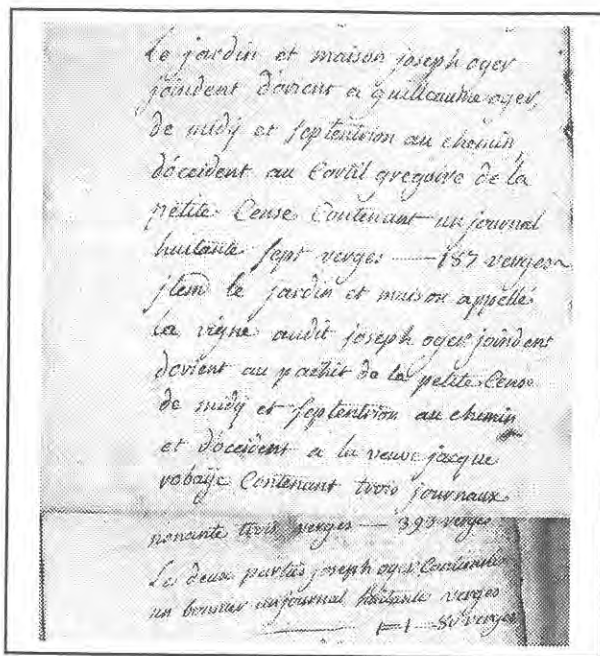 Le jardin et maison joseph oger
joindent d'orient a guilleaume oger,
de midÿ et septentrion au chemin,
d'occident au Cortil gregoire de la
petite Cense Contenant un journal
huitante sept verges — 187 verges
jtem le jardin et maison appellé
la vigne audit joseph oger joindent
d'orient au pachit de la petite Cense
de midÿ et septentrion au chemin
et d'occident a la veuve jacque
robaÿe Contenant trois journaux
nonante trois verges — 393 verges
Le deux parties joseph oger Contienne
un bonnier un journal huitante verges
— 1=1 — 80 verges